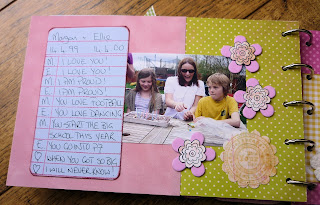 Morgan + Ellie
14.6.99 14.6.00
M I LOVE YOU!
E I LOVE YOU!
M I AM PROUD!
E I AM PROUD!
M YOU LOVE FOOTBALL
E YOU LOVE DANCING
M YOU START THE BIG
SCHOOL THIS YEAR
E YOU GO INTO P7
♡ WHEN YOU GOT SO BIG
♡ I WILL NEVER KNOW!